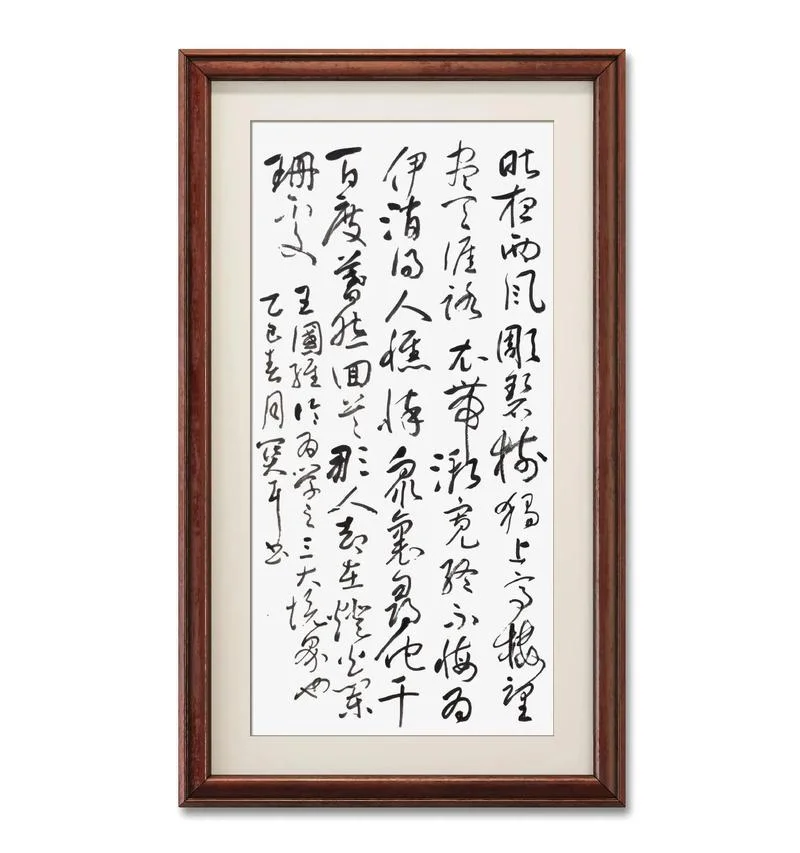 昨夜西風彫碧樹獨上高樓望
盡天涯路衣帶漸寬終不悔為
伊消得人憔悴眾裏尋他千
百度驀然回首那人却在燈火闌
珊處
王國維 為學之三大境界也
乙巳春月 书